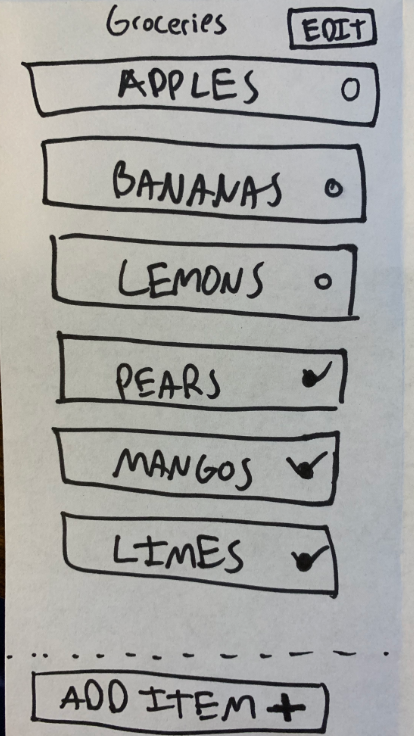 Groceries EDIT
APPLES
BANANAS
LEMONS
PEARS
MANGOS
LIMES
ADD ITEM +